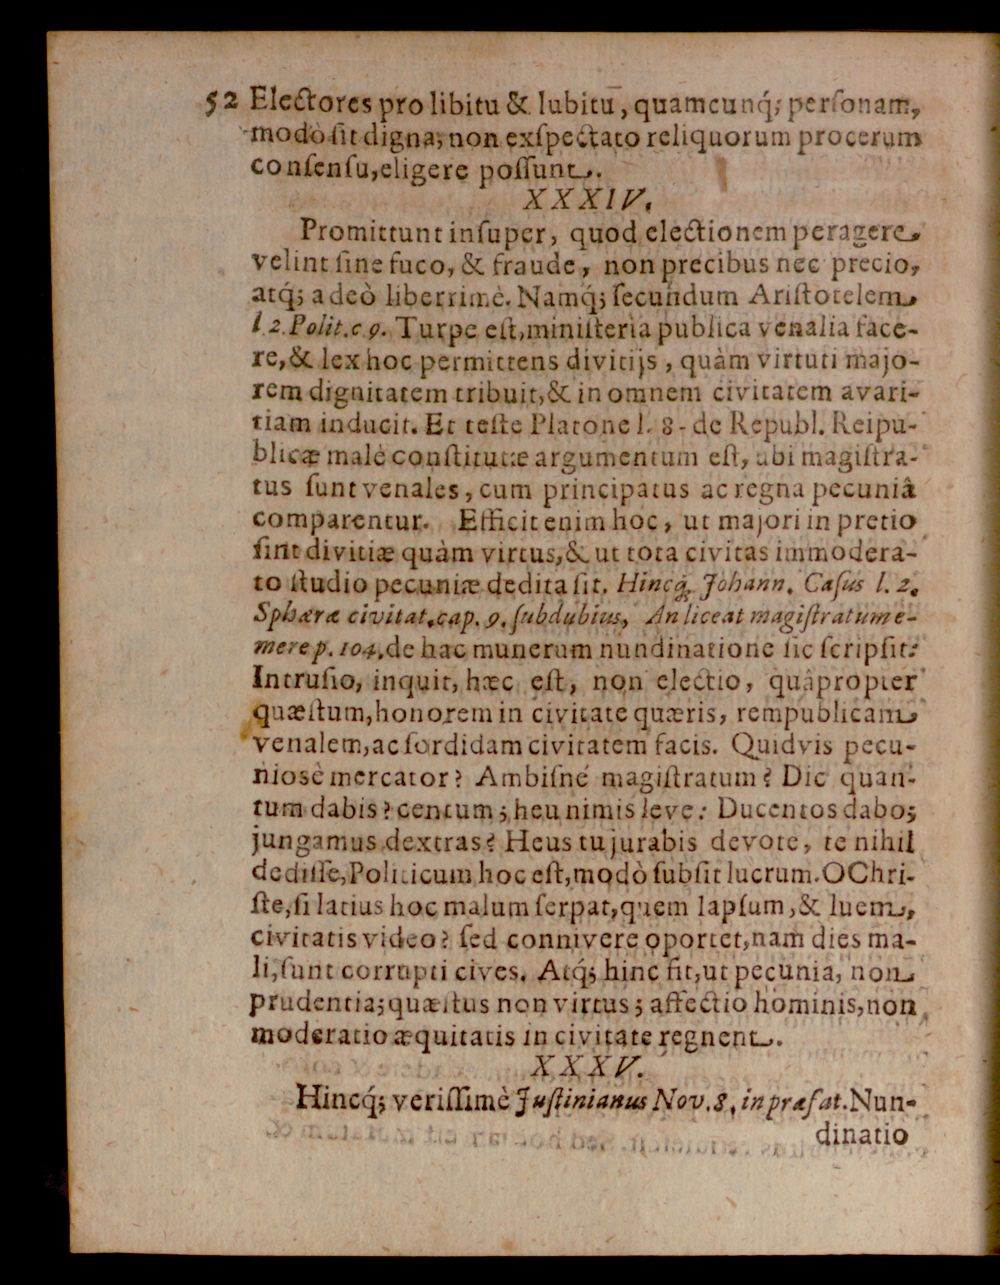 52 Electores pro libitu & lubitu, quamcunq́; perſonam,
modò ſit digna, non exſpectato reliquorum procerum
conſenſu, eligere poſſunt.
XXXIV.
Promittunt inſuper, quod electionem peragere,
velint ſine fuco, & fraude, non precibus nec precio,
atq́; adeò liberrimè. Namq́; ſecundum Ariſtotelem,
l. 2. Polit. c 9. Turpe eſt, miniſteria publica venalia face-
re, & lex hoc permittens divitijs, quàm virtuti majo-
rem dignitatem tribuit, & in omnem civitatem avari-
tiam inducit. Et teſte Platone l. 8. de Republ. Reipu-
blicæ malè conſtitutæ argumentum eſt, ubi magiſtra-
tus ſunt venales, cum principatus ac regna pecuniâ
comparentur. Efficit enim hoc, ut majori in pretio
ſint divitiæ quàm virtus, & ut tota civitas immodera-
to ſtudio pecuniæ dedita ſit. Hincq́; Johann. Caſus l. 2.
Sphæræ civitat. cap. 9. ſubdubius, An liceat magiſtratum e-
mere p. 104. de hac munerum nundinatione ſic ſcripſit:
Intruſio, inquit, hæc eſt, non electio, quâ propter
quæſtum, honorem in civitate quæris, rempublicam
venalem, ac ſordidam civitatem facis. Quidvis pecu-
niosè mercator? Ambiſné magiſtratum? Dic quan-
tum dabis? centum; heu nimis leve: Ducentos dabo;
jungamus dextras? Heus tu jurabis devote, te nihil
dediſſe, Politicum hoc eſt, modò ſubſit lucrum. O Chri-
ſte, ſi latius hoc malum ſerpat, quem lapſum, & luem,
civitatis video? ſed connivere oportet, nam dies ma-
li, ſunt corrupti cives. Atq́; hinc fit, ut pecunia, non
prudentia; quæſtus non virtus; affectio hominis, non
moderatio æquitatis in civitate regnent.
XXXV.
Hincq́; veriſſimè Juſtinianus Nov. 8. in præfat. Nun-
dinatio